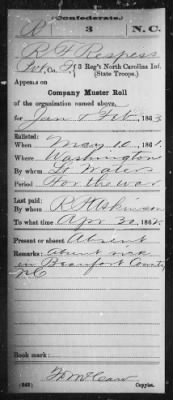 (Confederate.)
R 3 N. C.
R F Respess
Pvt, Co. I, 3 Reg't North Carolina Inf.
(State Troops.)
Appears on
Company Muster Roll
of the organization named above,
for Jan & Feb, 1863
Enlisted:
When May 10, 1861
Where Washington
By whom Lt Waters
Period For the war
Last paid:
By whom R H Atkinson
To what time Apr 30, 1862
Present or absent Absent
Remarks: absent sick
in Beaufort County
N C
Book mark:
(642) Copyist.